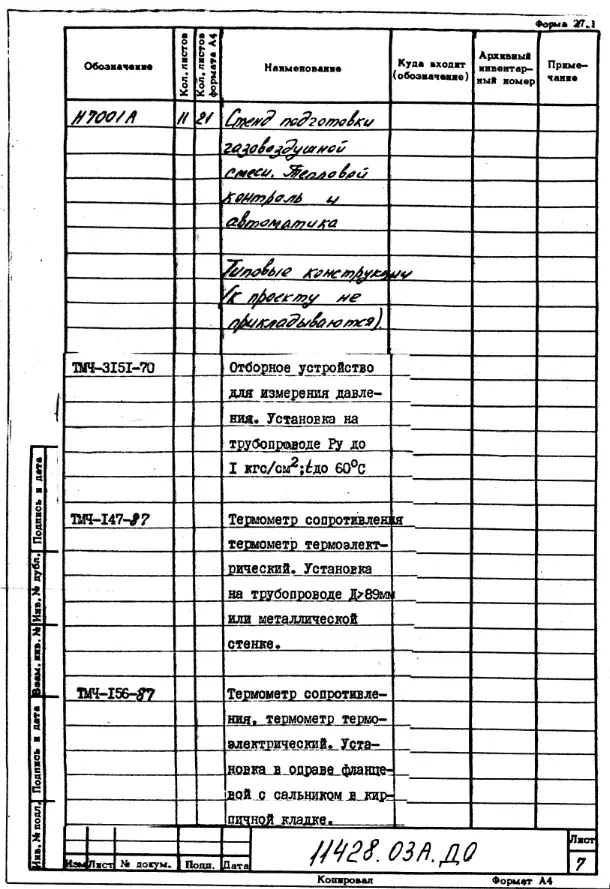 Форма 27.1
Обозначение
Кол. листов
Кол. листов формата А4
Наименование
Куда входит (обозначение)
Архивный инвентар-
ный номер
Приме-
чание
Н7001А 11 21 Стенд подготовки
газовоздушной
смеси. Тепловой
контроль и
автоматика
Типовые конструкции
(к проекту не
прикладываются)
ТМЧ-3151-70 Отборное устройство
для измерения давле-
ния. Установка на
трубопроводе Ру до
I кгс/см²; t до 60°С
ТМЧ-147-87 Термометр сопротивления
термометр термоэлект-
рический. Установка
на трубопроводе Д>89мм
или металлической
стенке.
ТМЧ-156-87 Термометр сопротивле-
ния, термометр термо-
электрический. Уста-
новка в оправе фланце-
вой с сальником в кир-
пичной кладке.
Инв. № подл. Подпись и дата Взам. инв. № Инв. № дубл. Подпись и дата
Изм Лист № докум. Подп. Дата
11428.03А.Д0
Лист
7
Копировал Формат А4